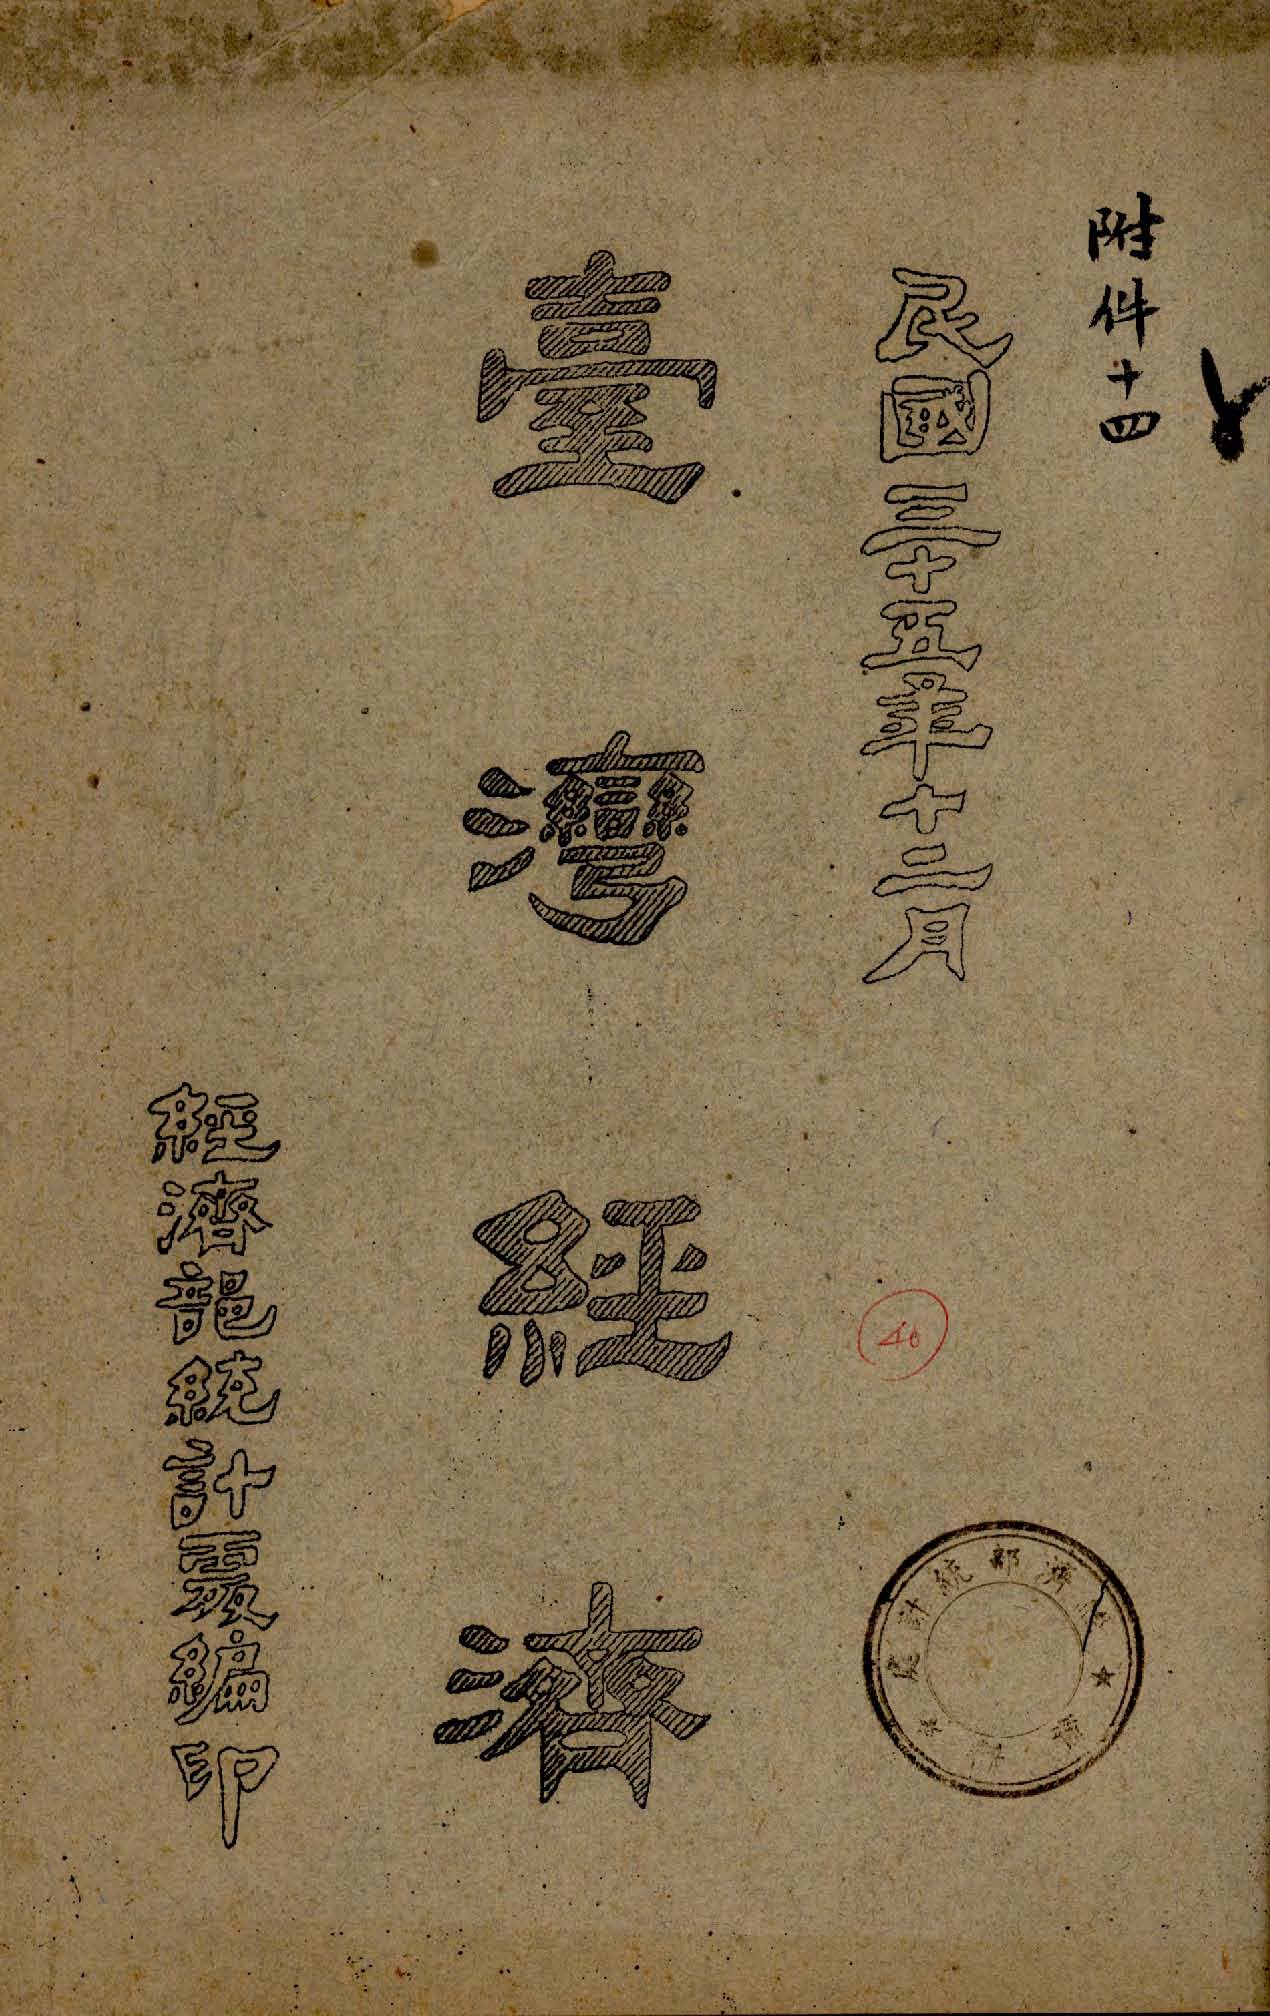 附件十四
民國三十五年十二月
臺灣經濟
經濟部統計處編印
40
濟部統計處